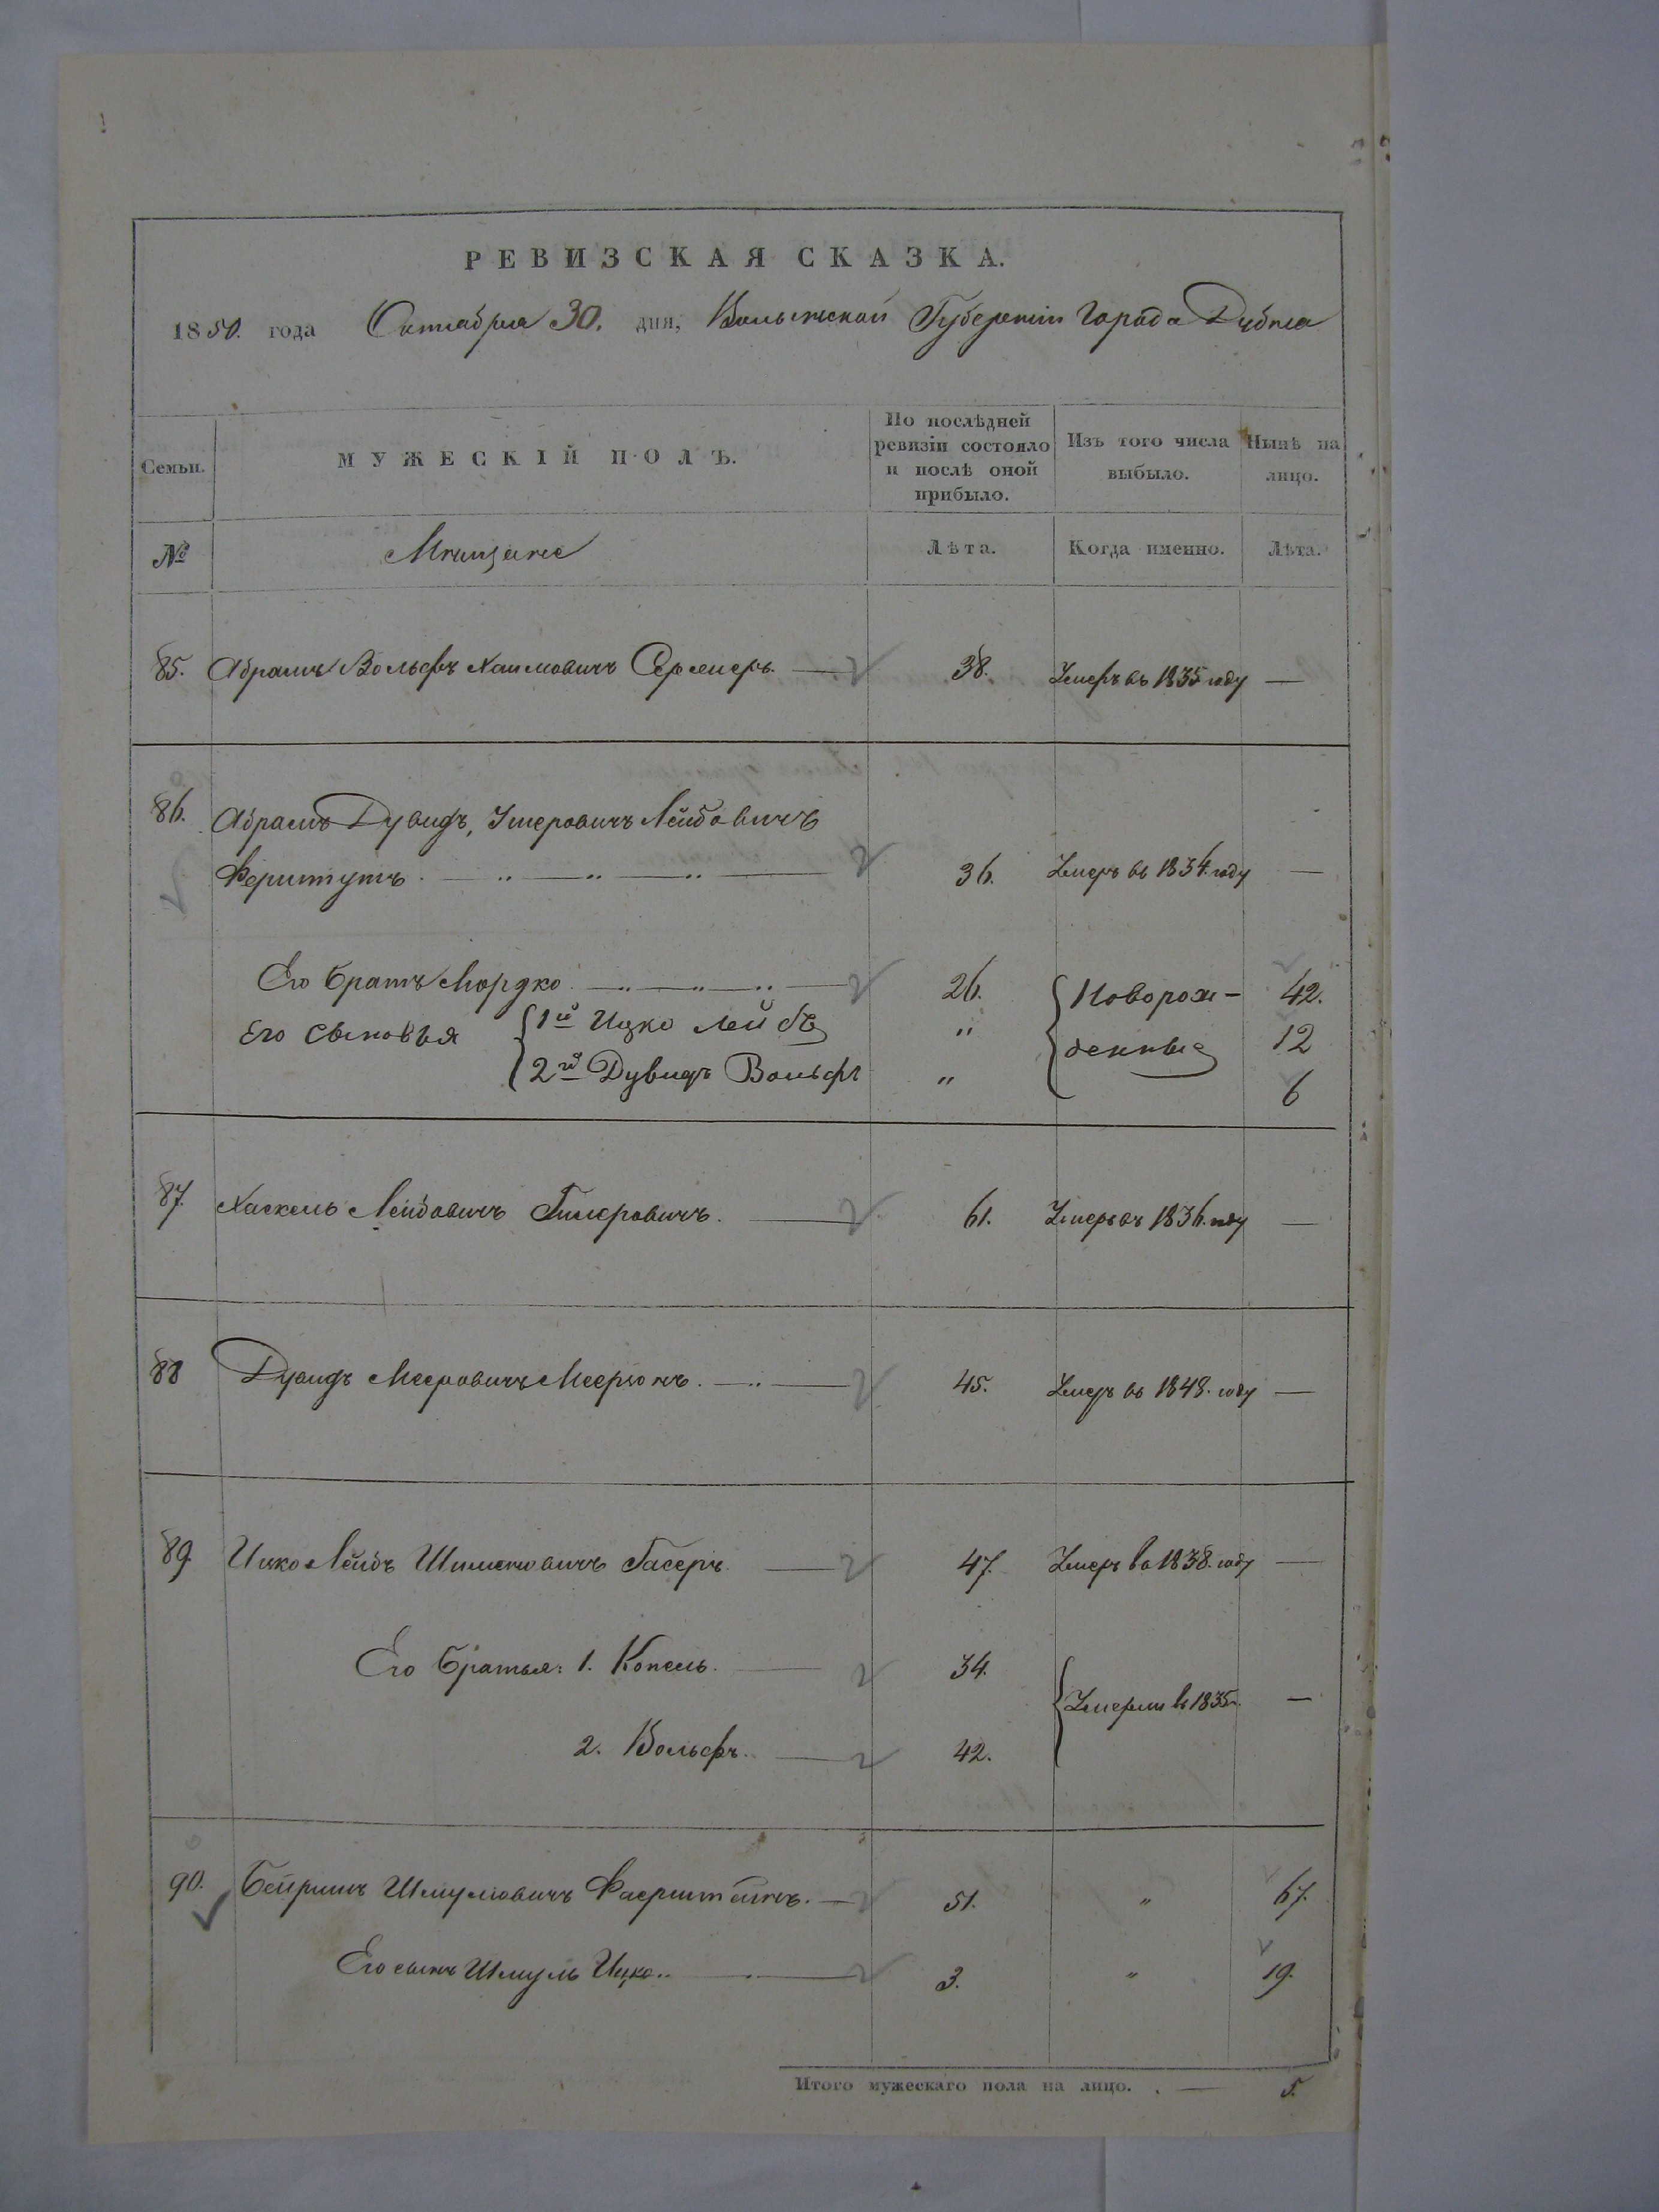 РЕВИЗСКАЯ СКАЗКА.
1850. года Октября 30. дня, Волынской Губерніи Города Дубна
Семьи. МУЖЕСКІЙ ПОЛЪ. По послѣдней ревизіи состояло и послѣ оной прибыло. Изъ того числа выбыло. Нынѣ на лицо.
№ Мѣщане Лѣта. Когда именно. Лѣта.
85. Абрамъ Вольфъ Хаимовичъ 38. Умеръ въ 1835 году —
86. Абрамъ Дувидъ, Умеровичъ Лейбовичъ
Ферштутъ. — " — " — " — 36. Умеръ въ 1834. году —
Его братъ Мордко — " — " — " — 26. 42.
Его сыновья { 1й Ицко Лейбъ " { Новорож- 12
2й Дувидъ Вольфъ " денные 6
87. Хаскель Лейбовичъ Гимеровичъ. — 61. Умеръ въ 1836. году —
88 Дувидъ Мееровичъ Меерзонъ. — " — 45. Умеръ въ 1848. году —
89. Ицко Лейбъ Шимоновичъ Гасеръ. — 47. Умеръ въ 1838. году —
Его братья: 1. Копель. — 34.
{ Умерли въ 1835г. —
2. Вольфъ. — 42.
90. Бейришъ Шмулювичъ Фаерштейнъ. — 51. " 67.
Его сынъ Шмуль Ицко.. — " — 3. " 19.
Итого мужескаго пола на лицо. . — 5.